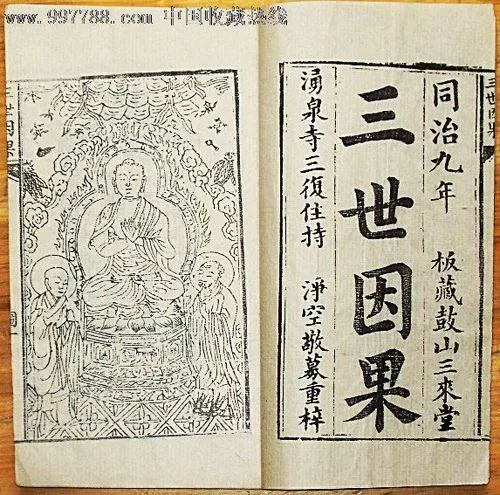 www.997788.com 中国收藏热线
同治九年 板藏鼓山三來堂
三世因果
湧泉寺三復住持 淨空敬募重梓
三世因果